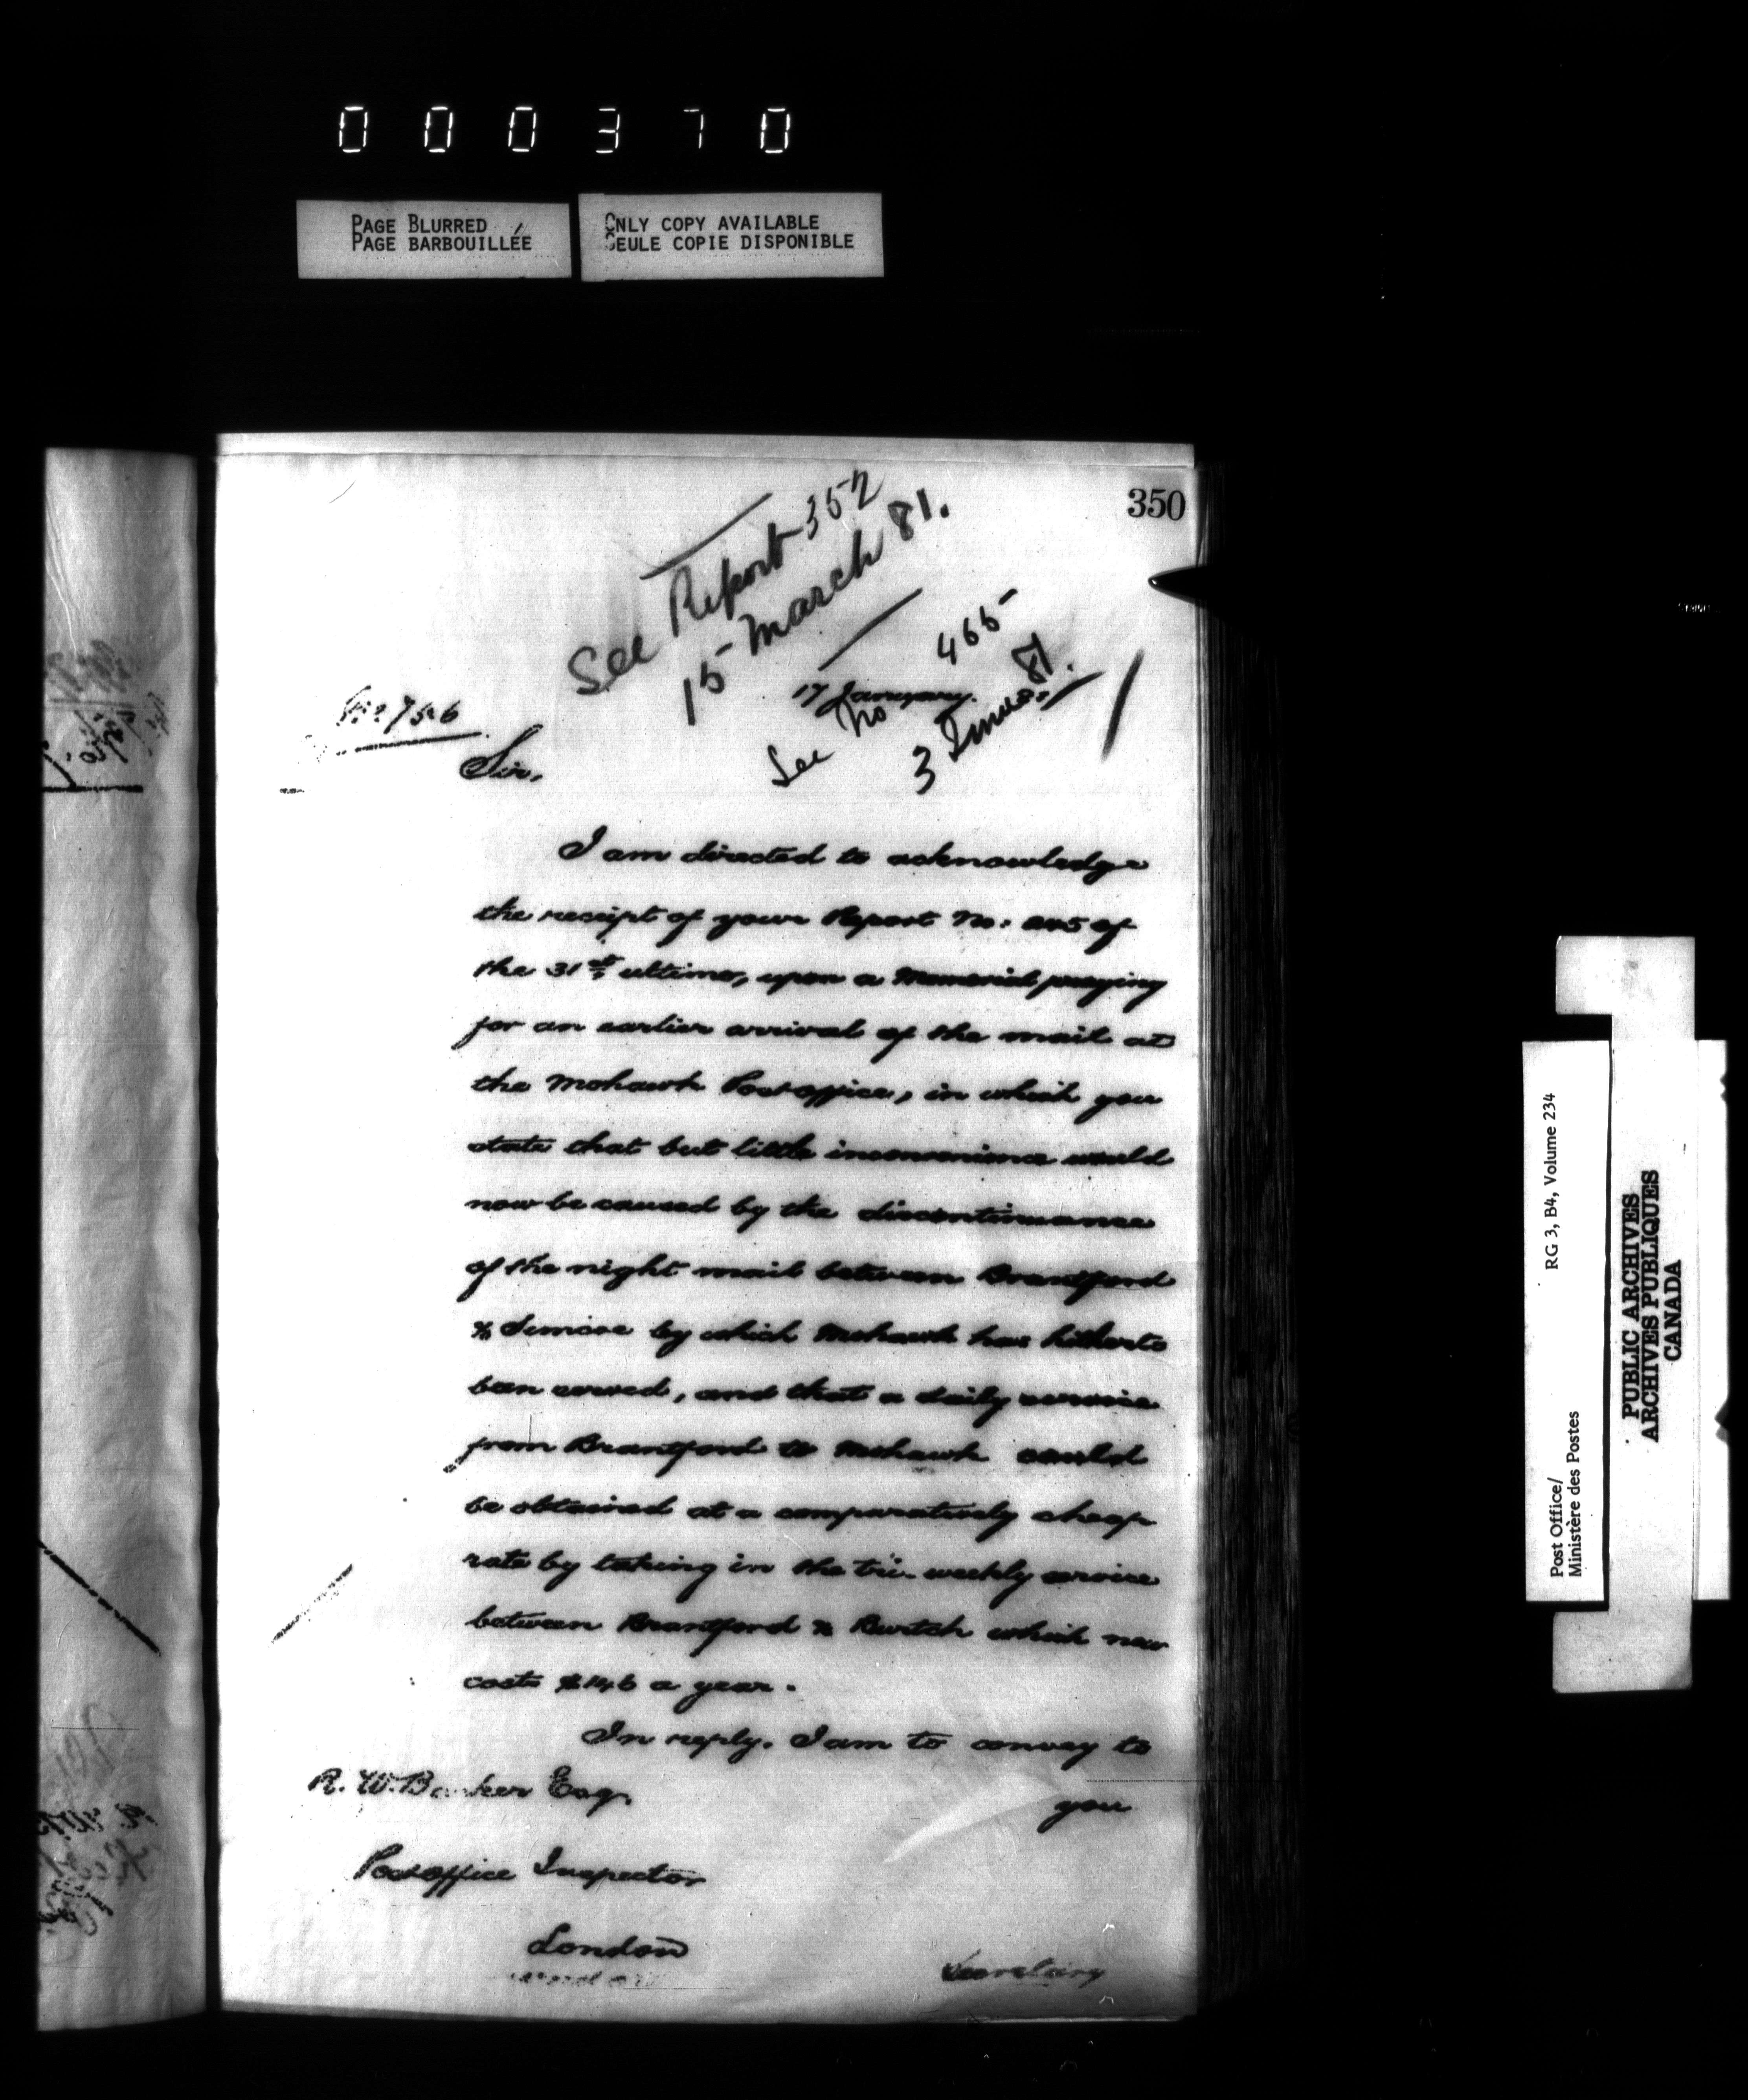 000370
PAGE BLURRED
PAGE BARBOUILLÉE
ONLY COPY AVAILABLE
SEULE COPIE DISPONIBLE
350
See Report 352
15 March 81.
See No 465
3 June 81.
17 January
756
Sir,
I am directed to acknowledge
the receipt of your Report No: of
the 31st ultimo, upon a Memorial praying
for an earlier arrival of the mail at
the Mohawk Post office, in which you
state that but little inconvenience would
now be caused by the discontinuance
of the night mail between Brantford
& Simcoe by which Mohawk has hitherto
been served, and that a daily service
from Brantford to Mohawk could
be obtained at a comparatively cheap
rate by taking in the tri-weekly service
between Brantford & Burtch which now
costs $146 a year.
In reply, I am to convey to
you
R. W. Barker Esq.
Post office Inspector
London
Secretary
Post Office/
Ministère des Postes
RG 3, B4, Volume 234
PUBLIC ARCHIVES
ARCHIVES PUBLIQUES
CANADA